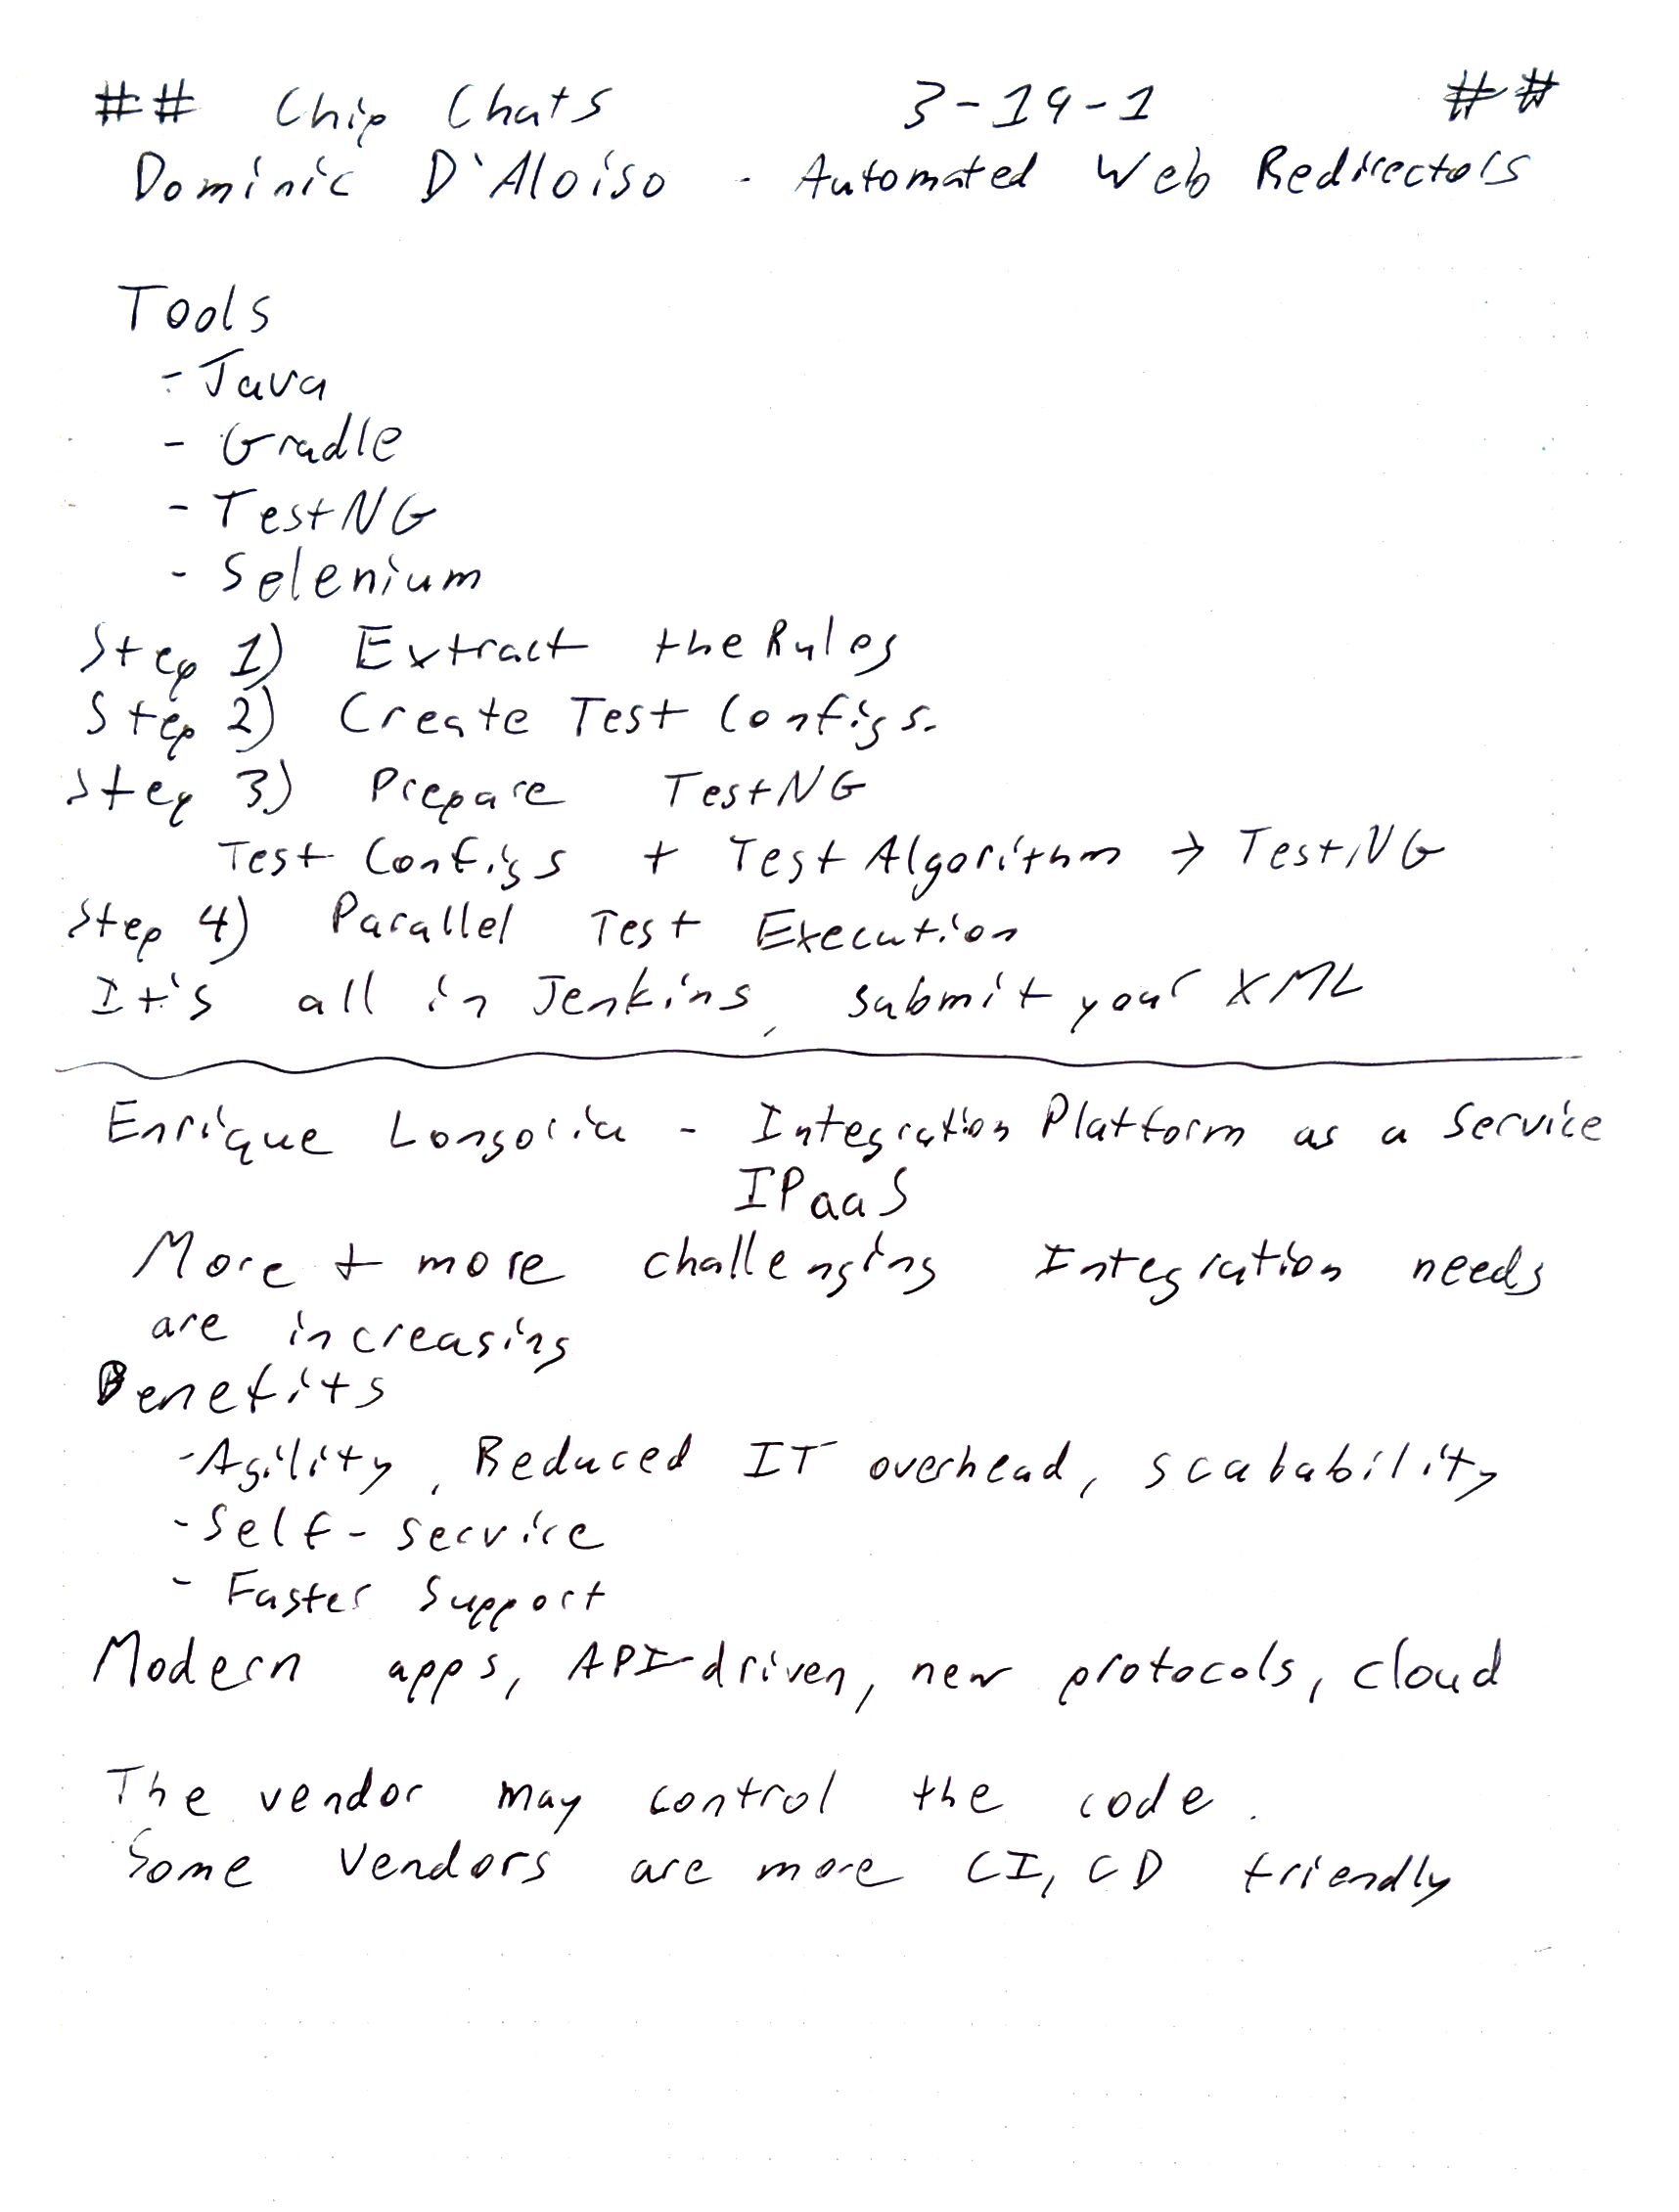 ## Chip Chats 3-19-1 ##
Dominic D'Aloiso - Automated Web Redirectors
Tools
- Java
- Gradle
- TestNG
- Selenium
Step 1) Extract the Rules
Step 2) Create Test Configs.
Step 3) Prepare TestNG
Test Configs + Test Algorithm → TestNG
Step 4) Parallel Test Execution
It's all in Jenkins, submit your XML
Enrique Longoria - Integration Platform as a Service
IPaaS
More + more challenging Integration needs
are increasing
Benefits
- Agility, Reduced IT overhead, scabability
- Self-service
- Faster Support
Modern apps, API-driven, new protocols, cloud
The vendor may control the code.
Some vendors are more CI, CD friendly